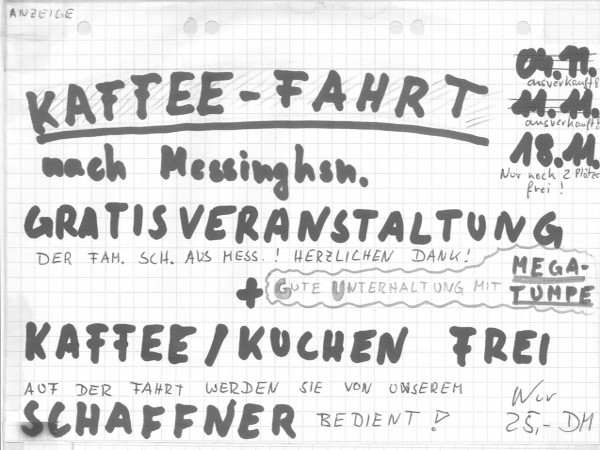 ANZEIGE
04.11.
ausverkauft!
11.11.
ausverkauft!
18.11.
Nur noch 2 Plätze
frei!
KAFFEE-FAHRT
nach Messinghsn.
GRATISVERANSTALTUNG
DER FAM. SCH. AUS MESS.! HERZLICHEN DANK!
+ GUTE UNTERHALTUNG MIT MEGA-
TUMPE
KAFFEE/KUCHEN FREI
AUF DER FAHRT WERDEN SIE VON UNSEREM
SCHAFFNER BEDIENT!
Nur
25,- DM